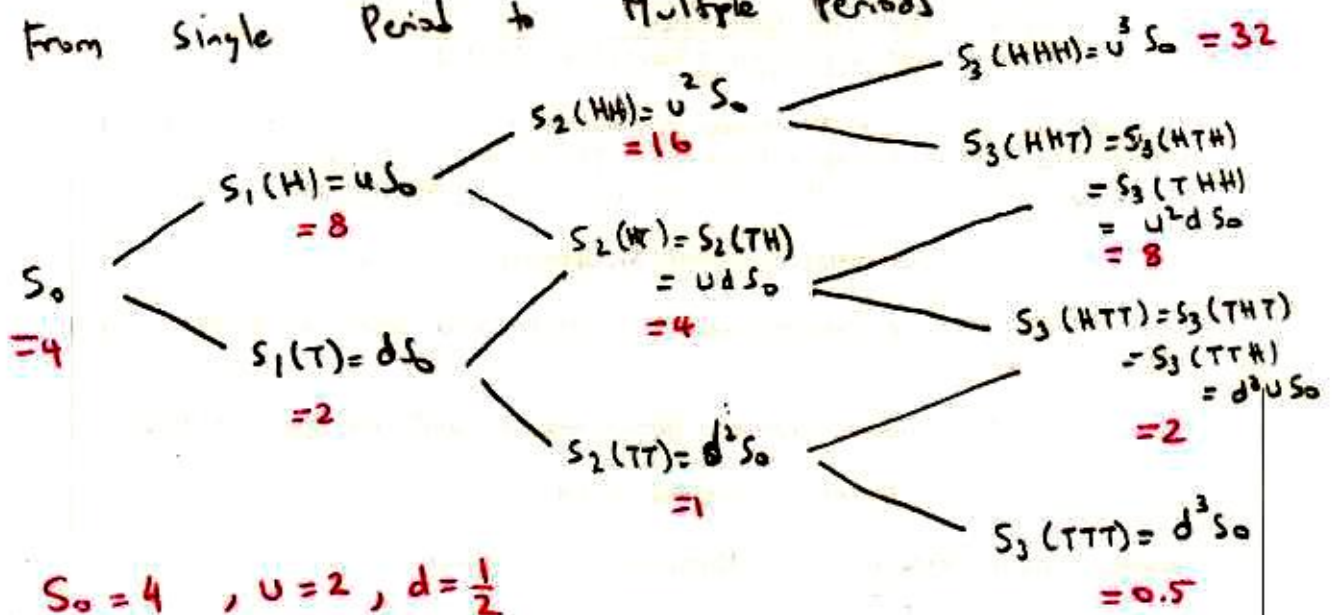 From Single Period to Multiple Periods
S₀
=4
S₁(H)=uS₀
=8
S₁(T)=dS₀
=2
S₂(HH)=u²S₀
=16
S₂(HT)=S₂(TH)
=udS₀
=4
S₂(TT)=d²S₀
=1
S₃(HHH)=u³S₀ =32
S₃(HHT)=S₃(HTH)
=S₃(THH)
=u²dS₀
=8
S₃(HTT)=S₃(THT)
=S₃(TTH)
=d²uS₀
=2
S₃(TTT)=d³S₀
=0.5
S₀=4 , u=2 , d=1/2